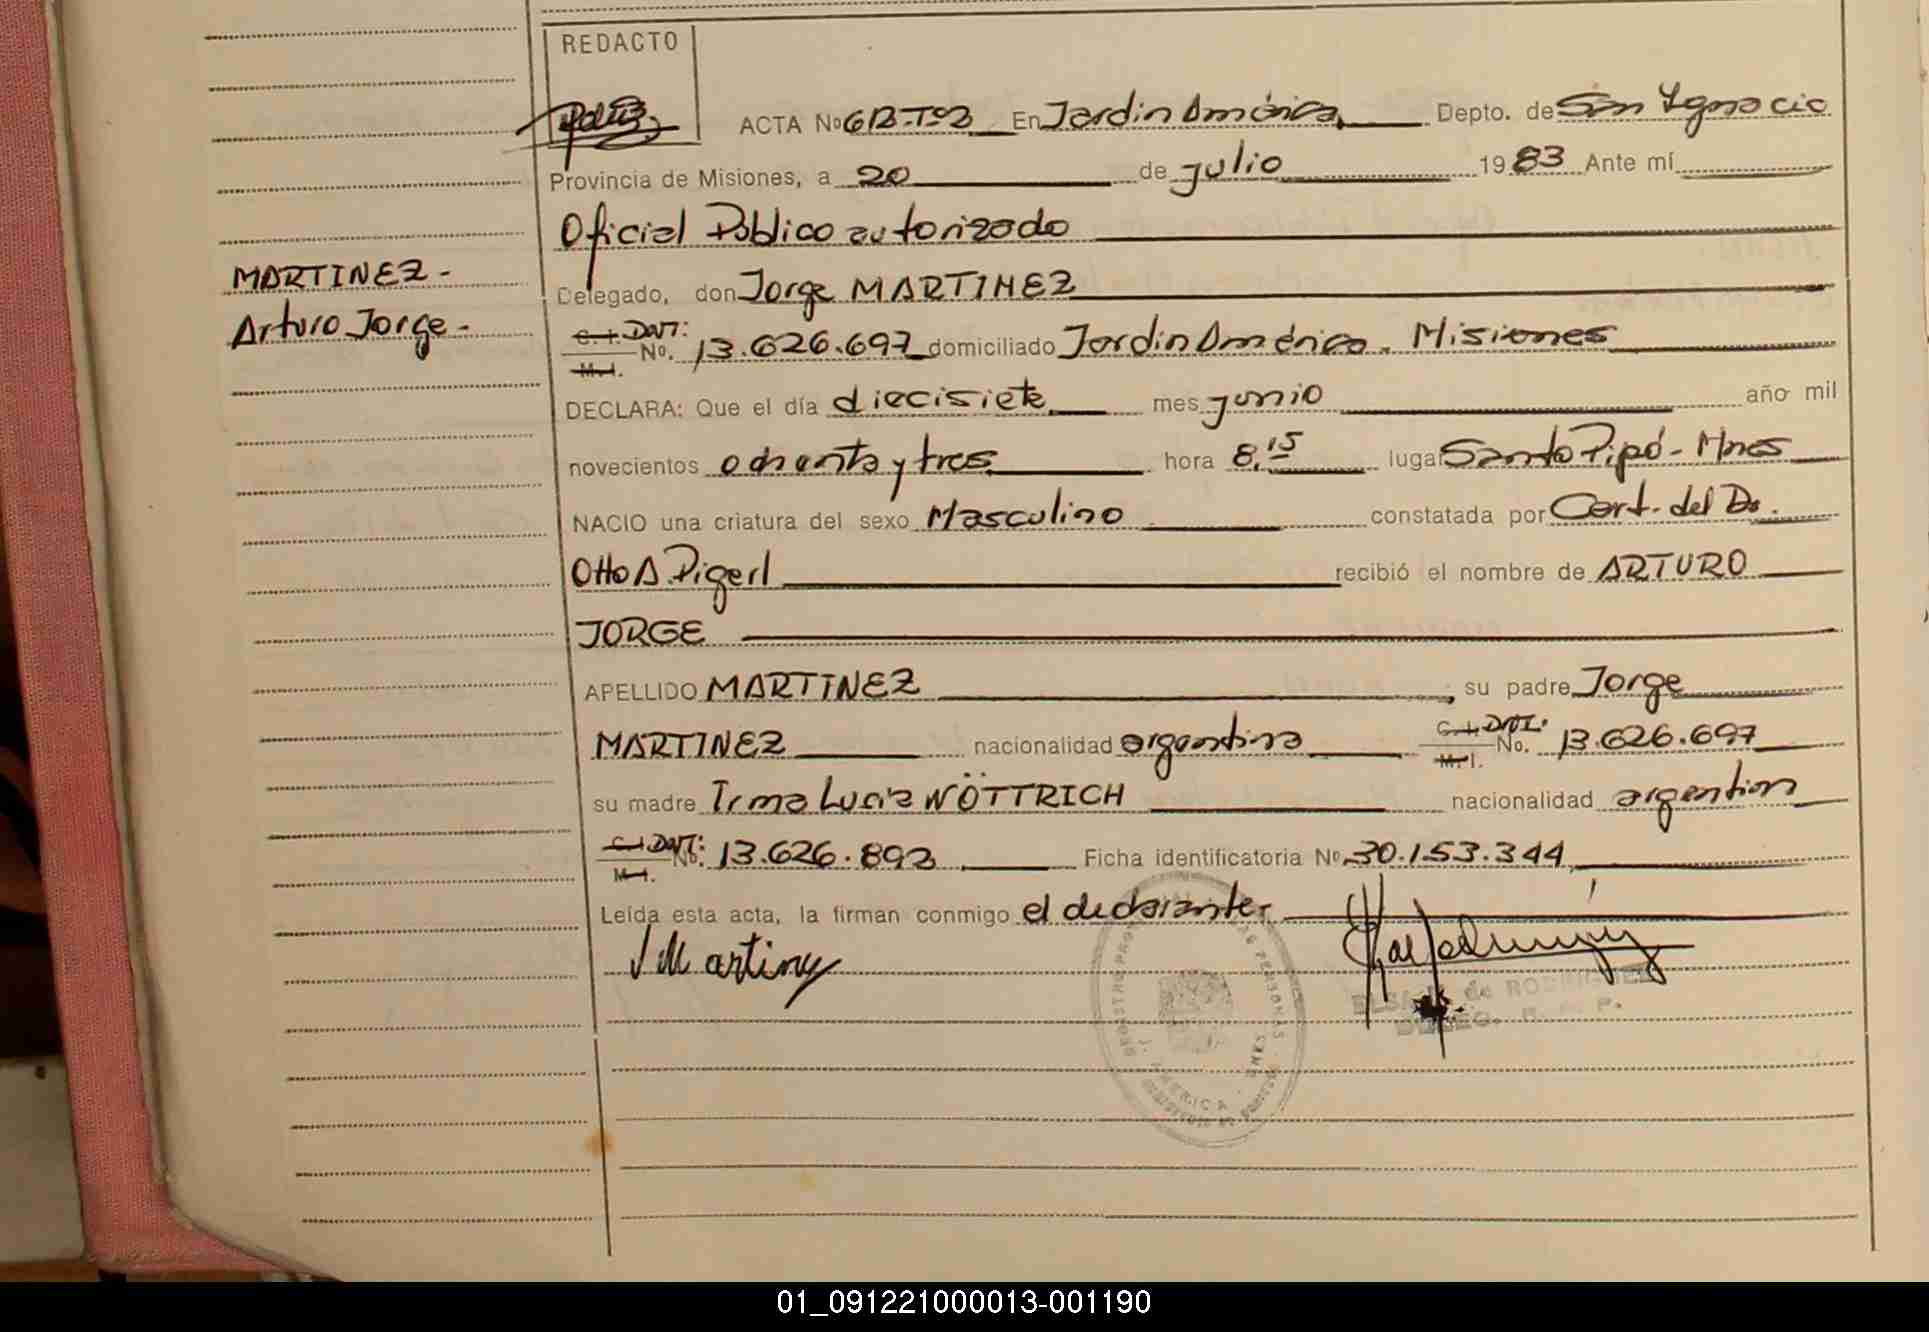 REDACTO
ACTA No 613-Tº2 En Jardin América Depto. de San Ignacio
Provincia de Misiones, a 20 de julio 1983 Ante mí
Oficial Público autorizado
MARTINEZ-
Delegado, don Jorge MARTINEZ
Arturo Jorge-
C.I. DNI: M.I. No. 13.626.697 domiciliado Jardin América. Misiones
DECLARA: Que el día diecisiete mes junio año mil
novecientos ochenta y tres hora 8,15 lugar Santo Pipó-Mnes
NACIO una criatura del sexo Masculino constatada por Cert. del Dr.
Otto A. Pigerl recibió el nombre de ARTURO
JORGE
APELLIDO MARTINEZ, su padre Jorge
MARTINEZ nacionalidad argentina C.I. DNI: M.I. No. 13.626.697
su madre Irma Lucía WÖTTRICH nacionalidad argentina
C.I. DNI: M.I. No. 13.626.892 Ficha identificatoria No 30.153.344
Leída esta acta, la firman conmigo el declarante.
JMartinez
de RODRIGUEZ
01_091221000013-001190